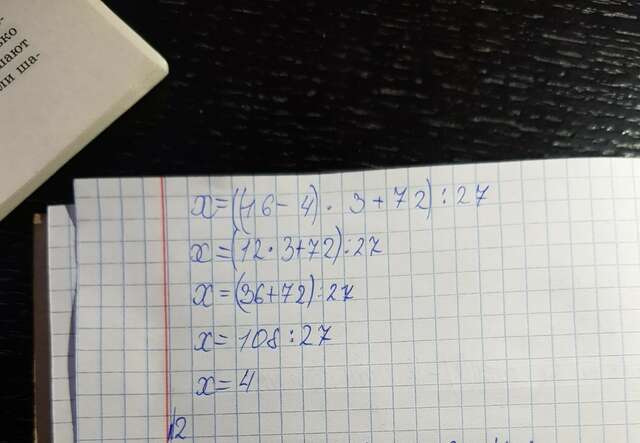 ько
лают
ли ша-
x=((16-4)·3+72):27
x=(12·3+72):27
x=(36+72):27
x=108:27
x=4
12